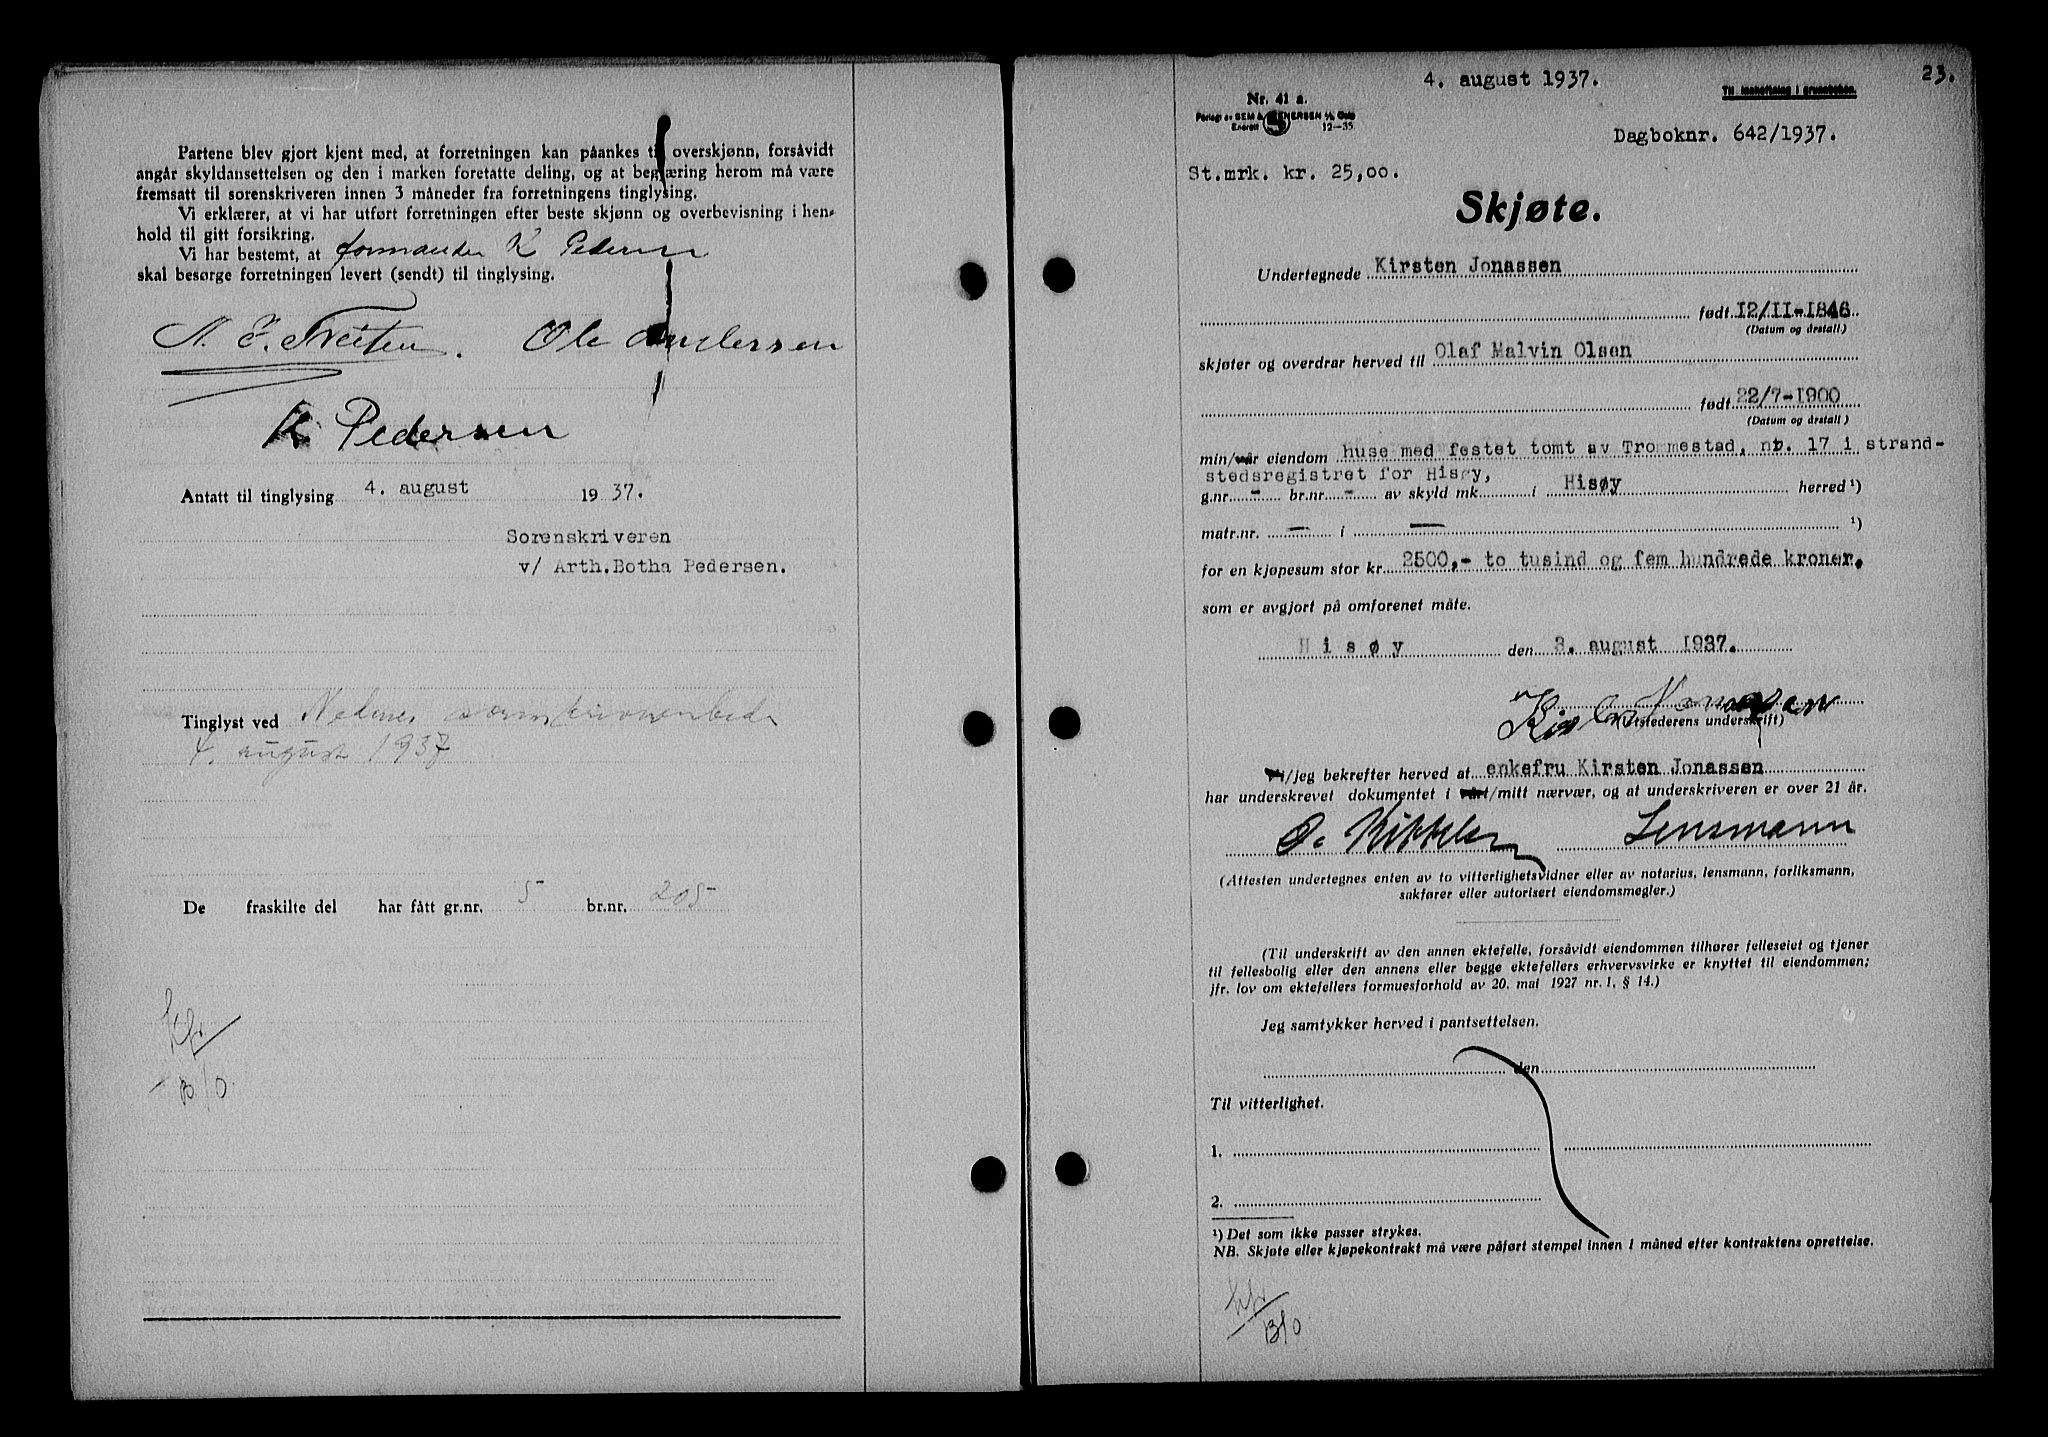 Partene blev gjort kjent med, at forretningen kan påankes til overskjønn, forsåvidt
angår skyldansettelsen og den i marken foretatte deling, og at begjæring herom må være
fremsatt til sorenskriveren innen 3 måneder fra forretningens tinglysing.
Vi erklærer, at vi har utført forretningen efter beste skjønn og overbevisning i hen-
hold til gitt forsikring.
Vi har bestemt, at formannen K Pedersen
skal besørge forretningen levert (sendt) til tinglysing.
N. J. Treiten. Ole Andersen
K. Pedersen
Antatt til tinglysing 4. august 1937.
Sorenskriveren
v/ Arth.Botha Pedersen.
Tinglyst ved Nedenes sorenskriverembede
4. august 1937
De fraskilte del har fått gr.nr. 5 br.nr. 205
23.
4. august 1937.
Til innheftning i grunnboken.
Nr. 41 a.
Forlagt av SEM & STENERSEN A/S Oslo
Enerett 12—35
Dagboknr. 642/1937.
St.mrk. kr. 25,00.
Skjøte.
Undertegnede Kirsten Jonassen
født 12/11-1846
(Datum og årstall)
skjøter og overdrar herved til Olaf Malvin Olsen
født 22/7-1900
(Datum og årstall)
min/vår eiendom huse med festet tomt av Trommestad, nr. 17 i strand-
stedsregistret for Hisøy,
g.nr. - br.nr. - av skyld mk. i Hisøy herred ¹)
matr.nr. — i — ¹)
for en kjøpesum stor kr 2500,- to tusind og fem hundrede kroner.
som er avgjort på omforenet måte.
Hisøy den 3. august 1937.
Kirsten Jonassen
(Utstederens underskrift)
Vi/jeg bekrefter herved at enkefru Kirsten Jonassen
har underskrevet dokumentet i vårt/mitt nærvær, og at underskriveren er over 21 år.
Lensmann
(Attesten undertegnes enten av to vitterlighetsvidner eller av notarius, lensmann, forliksmann,
sakfører eller autorisert eiendomsmegler.)
(Til underskrift av den annen ektefelle, forsåvidt eiendommen tilhører felleseiet og tjener
til fellesbolig eller den annens eller begge ektefellers erhvervsvirke er knyttet til eiendommen;
jfr. lov om ektefellers formuesforhold av 20. mai 1927 nr. 1, § 14.)
Jeg samtykker herved i pantsettelsen.
den
Til vitterlighet.
1.
2.
¹) Det som ikke passer strykes.
NB. Skjøte eller kjøpekontrakt må være påført stempel innen 1 måned efter kontraktens oprettelse.